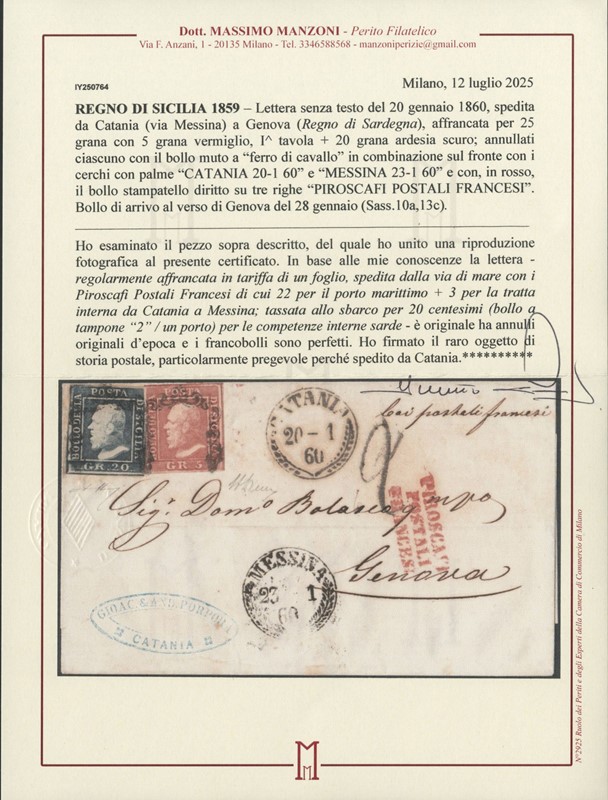 Dott. MASSIMO MANZONI - Perito Filatelico
Via F. Anzani, 1 - 20135 Milano - Tel. 3346588568 - manzoniperizie@gmail.com
IY250764
Milano, 12 luglio 2025
REGNO DI SICILIA 1859 – Lettera senza testo del 20 gennaio 1860, spedita
da Catania (via Messina) a Genova (Regno di Sardegna), affrancata per 25
grana con 5 grana vermiglio, I^ tavola + 20 grana ardesia scuro; annullati
ciascuno con il bollo muto a "ferro di cavallo" in combinazione sul fronte con i
cerchi con palme "CATANIA 20-1 60" e "MESSINA 23-1 60" e con, in rosso,
il bollo stampatello diritto su tre righe "PIROSCAFI POSTALI FRANCESI".
Bollo di arrivo al verso di Genova del 28 gennaio (Sass.10a,13c).
Ho esaminato il pezzo sopra descritto, del quale ho unito una riproduzione
fotografica al presente certificato. In base alle mie conoscenze la lettera -
regolarmente affrancata in tariffa di un foglio, spedita dalla via di mare con i
Piroscafi Postali Francesi di cui 22 per il porto marittimo + 3 per la tratta
interna da Catania a Messina; tassata allo sbarco per 20 centesimi (bollo a
tampone "2" / un porto) per le competenze interne sarde - è originale ha annulli
originali d'epoca e i francobolli sono perfetti. Ho firmato il raro oggetto di
storia postale, particolarmente pregevole perché spedito da Catania.**********
BOLLO DELLA POSTA DI SICILIA
GR. 20
POSTA
GR. 5
CATANIA
20 - 1
60
2
postali francesi
Sig.r Dom.o
Genova
PIROSCAFI
POSTALI
FRANCESI
MESSINA
23 1
60
GIOAC. & AND. PORPORA
CATANIA
M
N°2925 Ruolo dei Periti e degli Esperti della Camera di Commercio di Milano